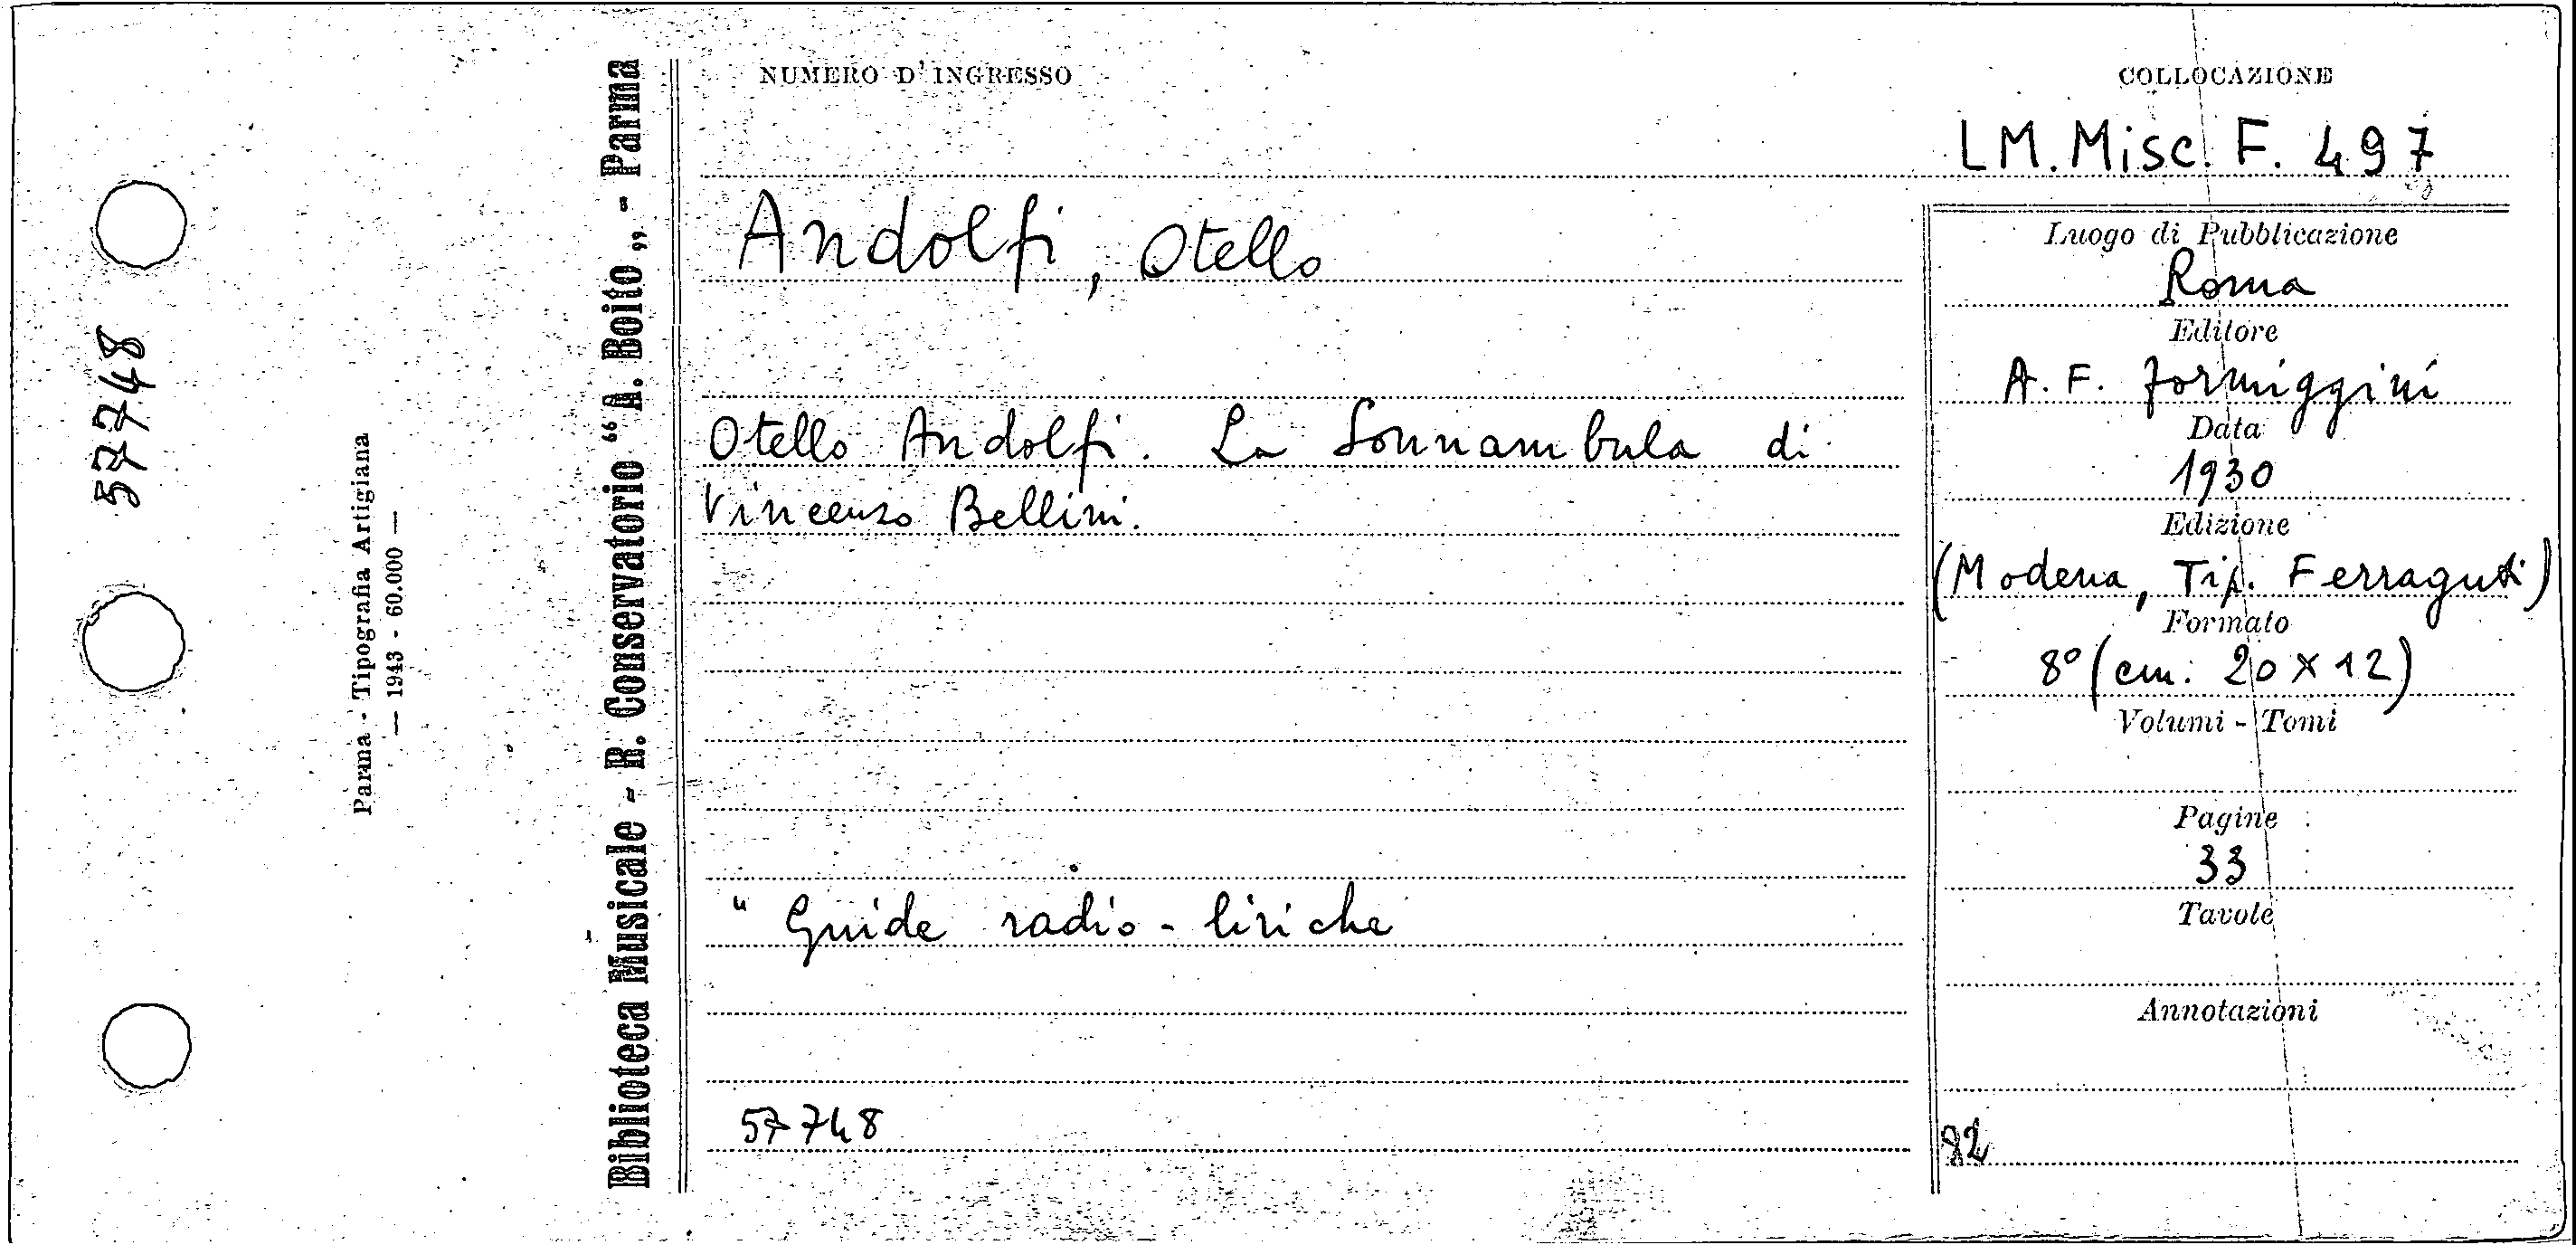 57748
Parma - Tipografia Artigiana
— 1943 - 60.000 —
Biblioteca Musicale - R. Conservatorio “A. Boito„ - Parma
NUMERO D'INGRESSO
COLLOCAZIONE
LM. Misc. F. 497
Andolfi, Otello
Otello Andolfi. La Sonnambula di
Vincenzo Bellini.
" Guide radio-liriche
57748
Luogo di Pubblicazione
Roma
Editore
A. F. Formiggini
Data
1930
Edizione
(Modena, Tip. Ferraguti)
Formato
8° (cm: 20 x 12)
Volumi - Tomi
Pagine
33
Tavole
Annotazioni
92